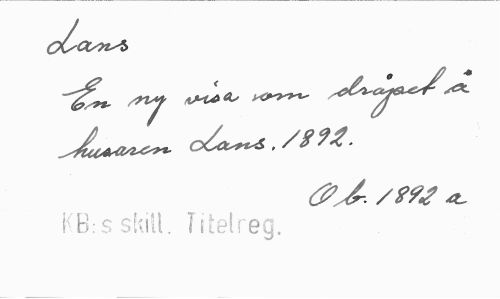 Lans
En ny visa om dråpet å
husaren Lans. 1892.
Ob. 1892 a
KB:s skill. Titelreg.